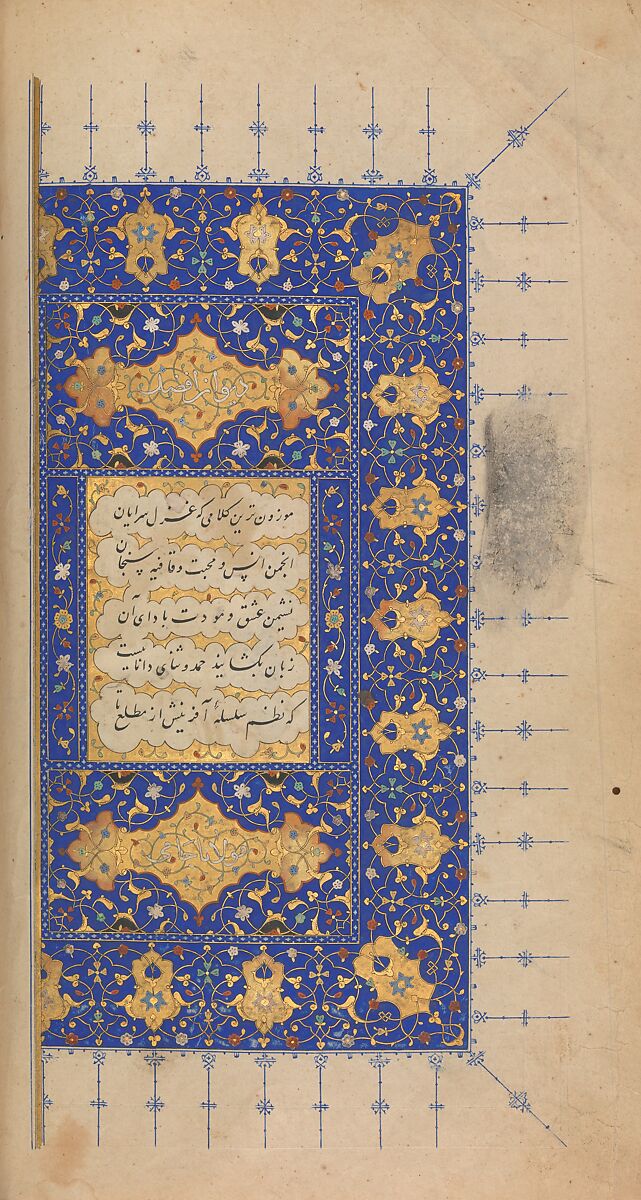 دیوان قصاید
موزون ترین کلامی که غزل سرایان
انجمن انس و محبت و قافیه سنجان
نشیمن عشق و مودت بادای آن
زبان بگشایند حمد و ثنای داناییست
که نظم سلسلهٔ آفرینش از مطلع تا
مولانا جامی